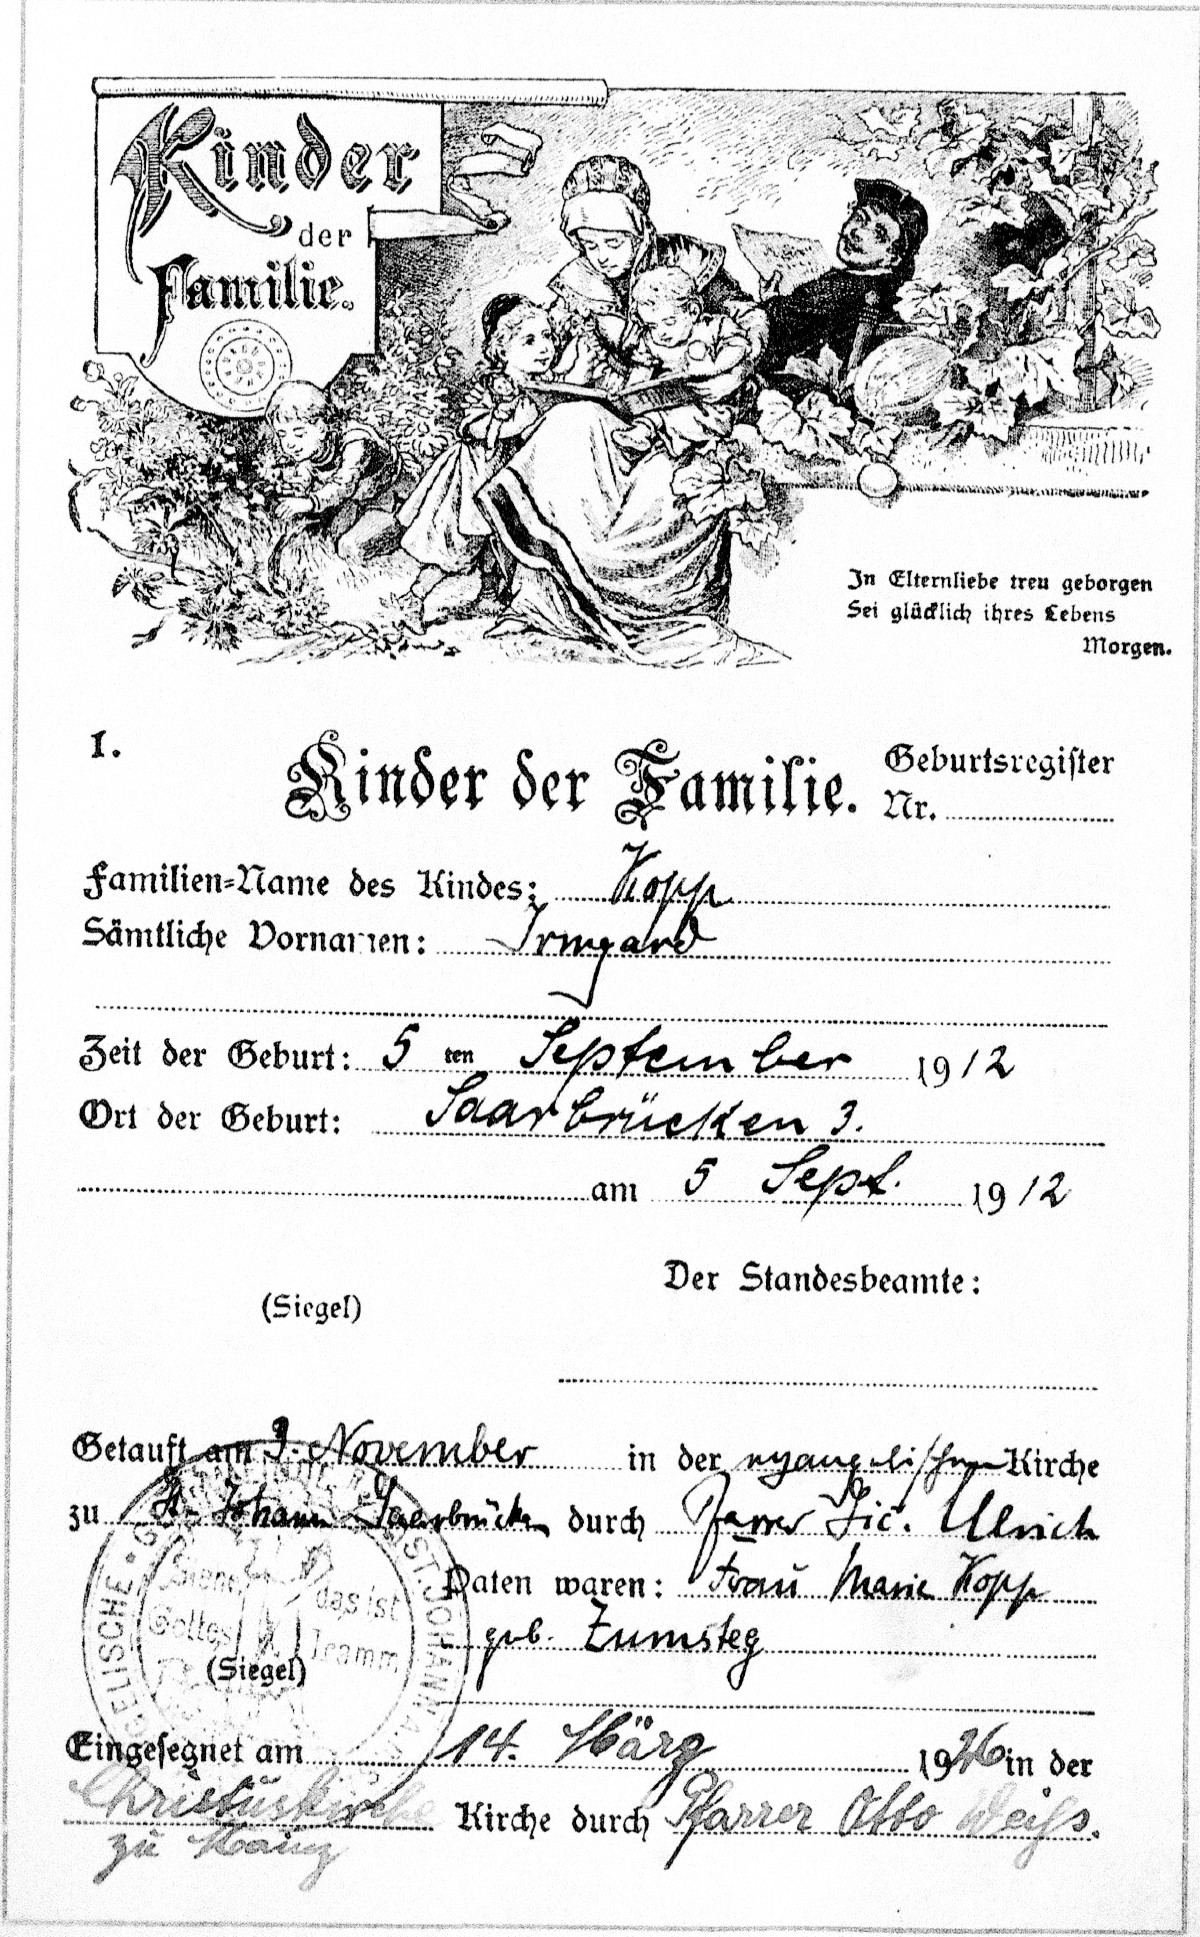 Kinder
der
Familie.
In Elternliebe treu geborgen
Sei glücklich ihres Lebens
Morgen.
1.
Kinder der Familie.
Geburtsregister
Nr.
Familien-Name des Kindes: Kopp
Sämtliche Vornamen: Irmgard
Zeit der Geburt: 5 ten September 1912
Ort der Geburt: Saarbrücken 3.
am 5 Sept. 1912
Der Standesbeamte:
(Siegel)
Getauft am 3. November in der evangelischen Kirche
zu St. Johann Saarbrücken durch Pfarrer Lic. Ulrich
Paten waren: Frau Marie Kopp
geb. Zumsteg
(Siegel)
GELISCHE
ST. JOHANN A
das ist
Gottes
Eingesegnet am 14. März 1926 in der
Christuskirche Kirche durch Pfarrer Otto Weiß.
zu Mainz